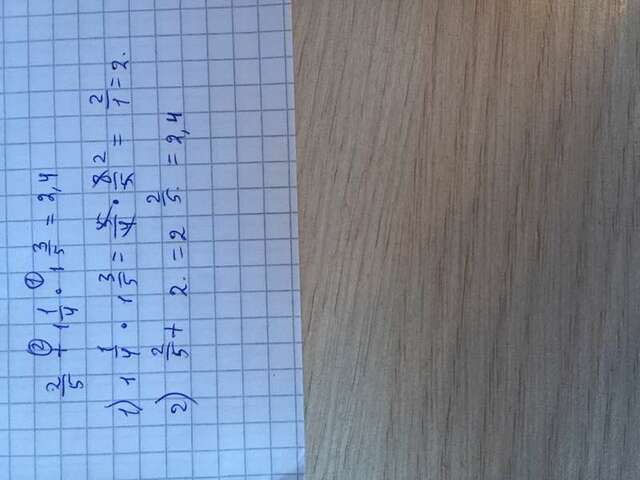 2/5 +② 1 1/4 ·① 1 3/5 = 2,4
1) 1 1/4 · 1 3/5 = 5/4 · 8/5 2 = 2/1 = 2.
2) 2/5 + 2. = 2 2/5. = 2,4